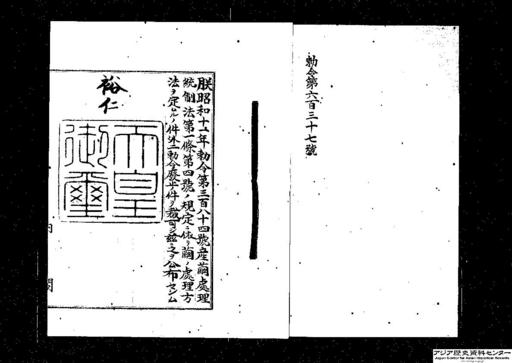 勅令第六百三十七號
朕昭和十一年勅令第三百八十四號産繭處理
統制法第一條第四號ノ規定ニ依リ繭ノ處理方
法ヲ定ムルノ件外二勅令廢止ノ件ヲ裁可シ茲ニ之ヲ公布セシム
裕仁
天皇
御璽
内閣
アジア歴史資料センター
Japan Center for Asian Historical Records